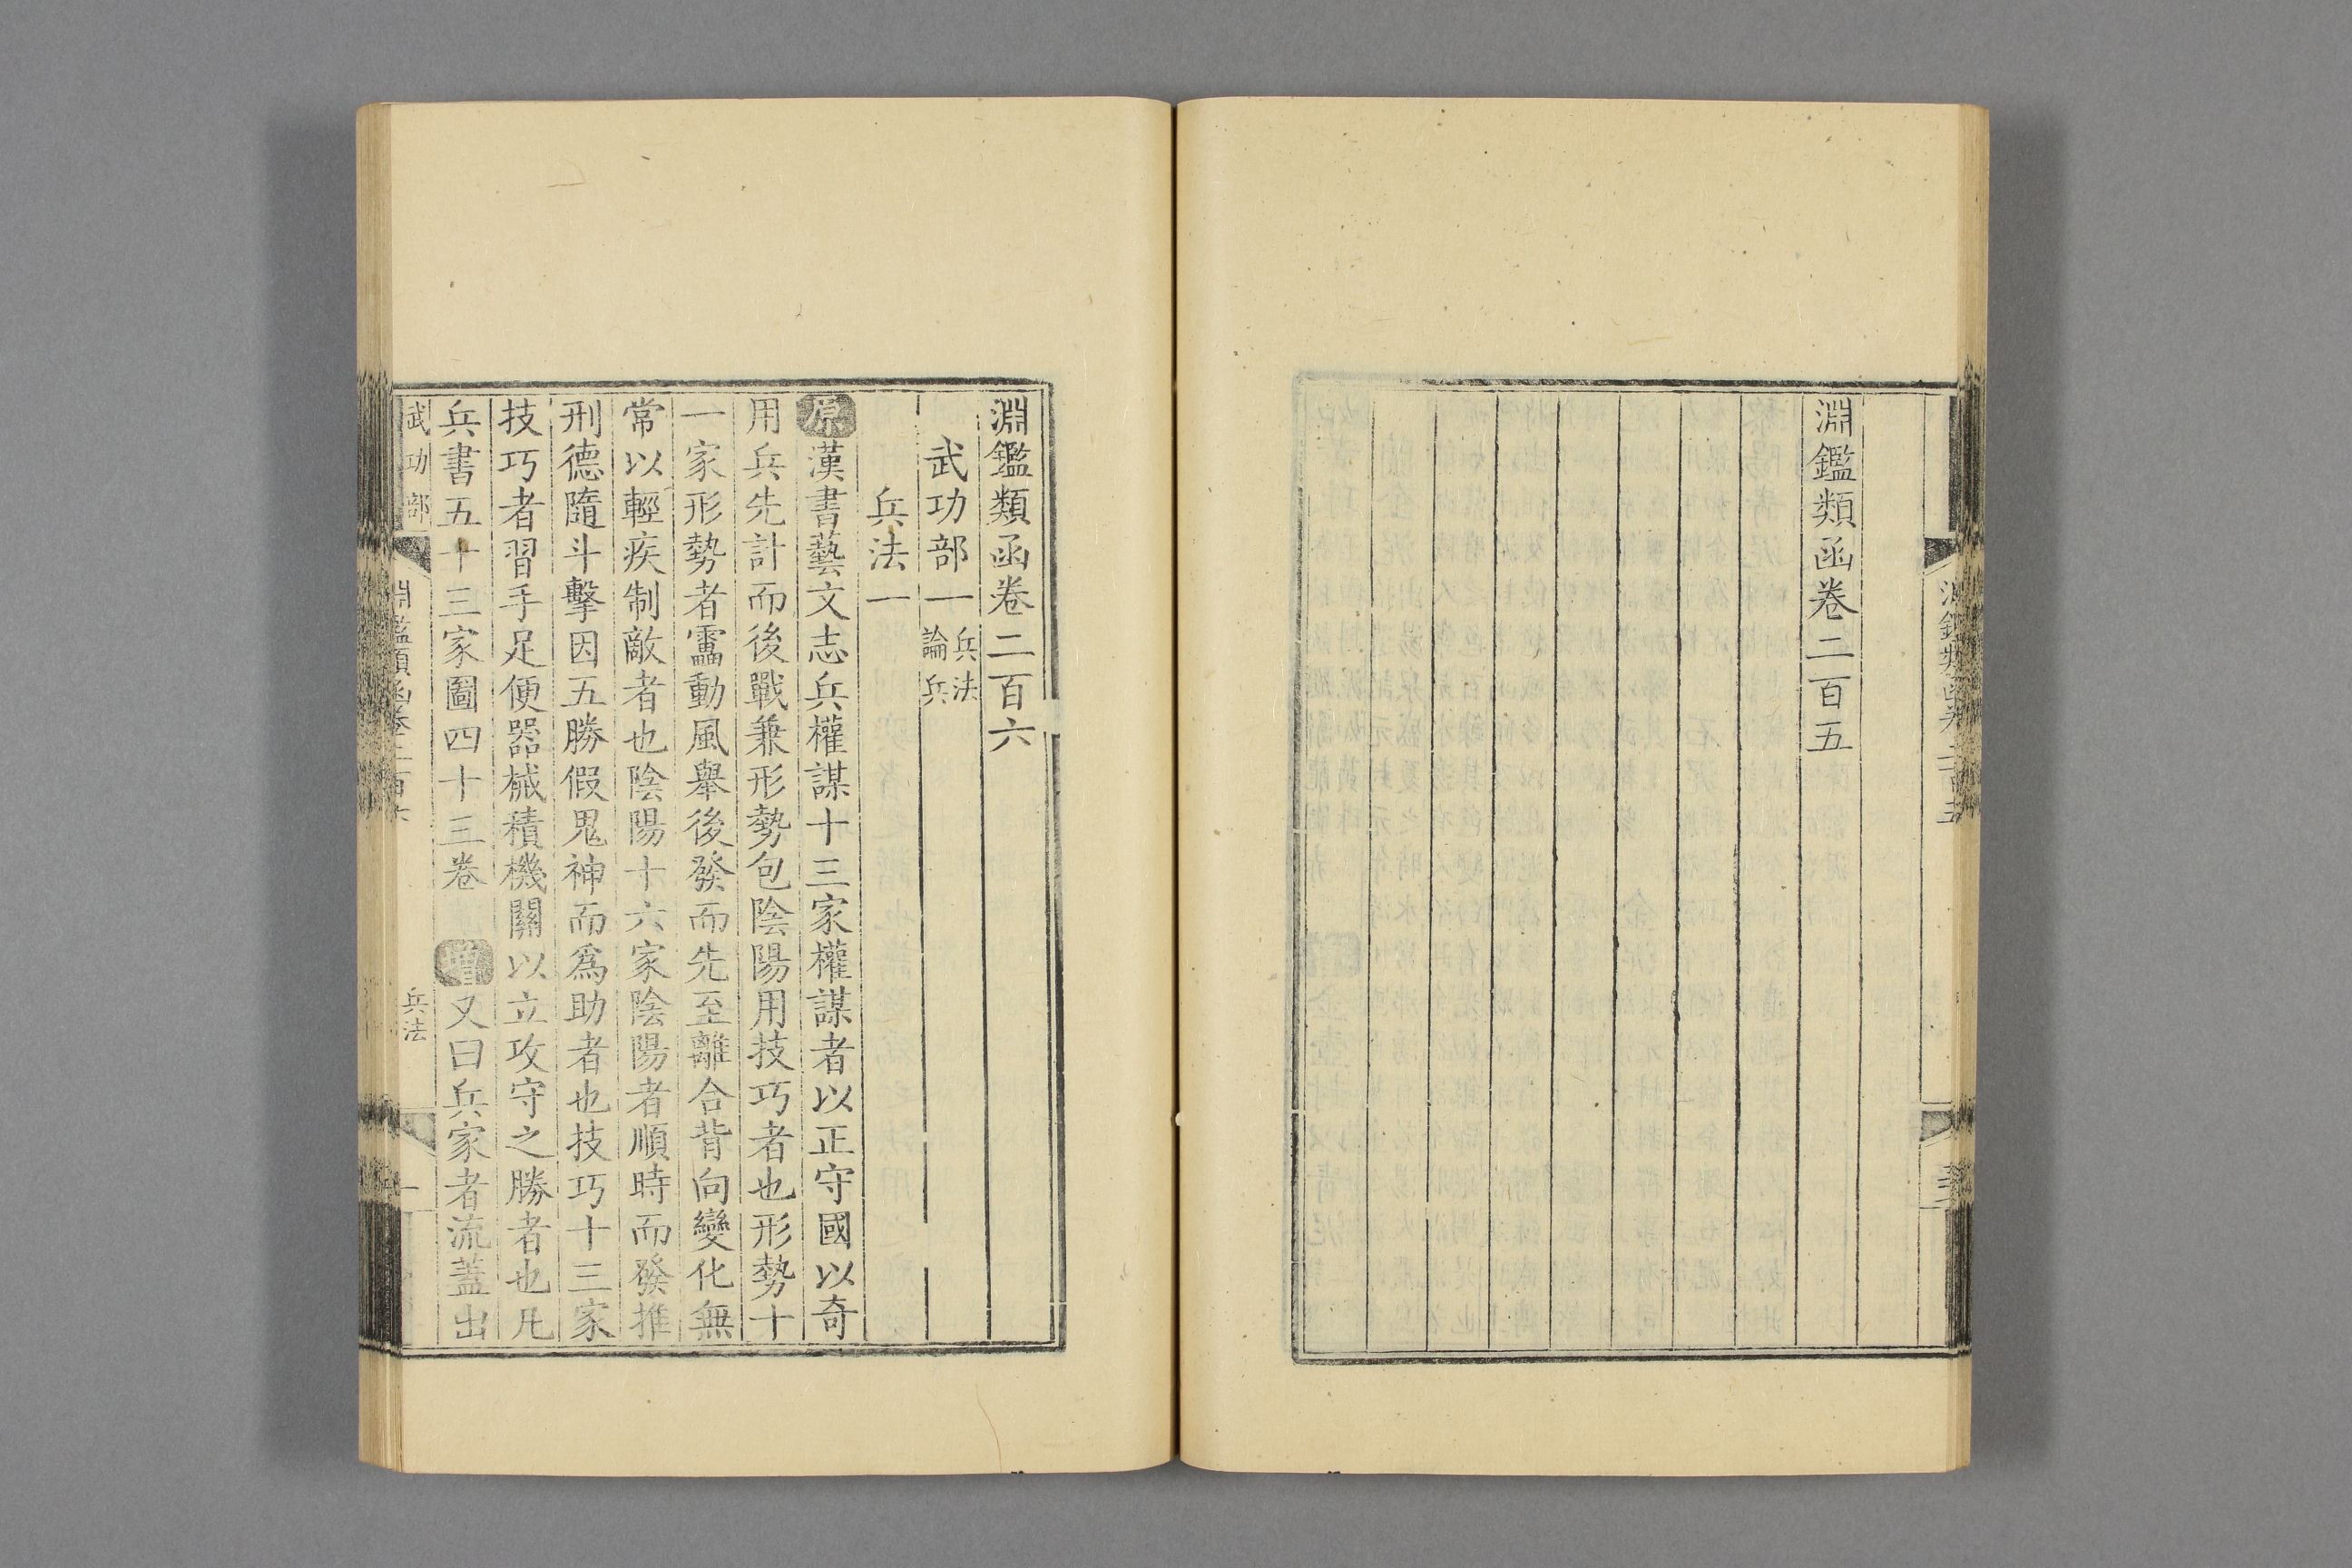 淵鑑類函卷二百五
淵鑑類函卷二百六
武功部一 兵法 論兵
兵法一
原漢書藝文志兵權謀十三家權謀者以正守國以奇
用兵先計而後戰兼形勢包陰陽用技巧者也形勢十
一家形勢者靁動風舉後發而先至離合背向變化無
常以輕疾制敵者也陰陽十六家陰陽者順時而發推
刑德隨斗擊因五勝假鬼神而爲助者也技巧十三家
技巧者習手足便器械積機關以立攻守之勝者也凡
兵書五十三家圖四十三卷 增又曰兵家者流蓋出
武功部 淵鑑類函卷二百六 兵法 一